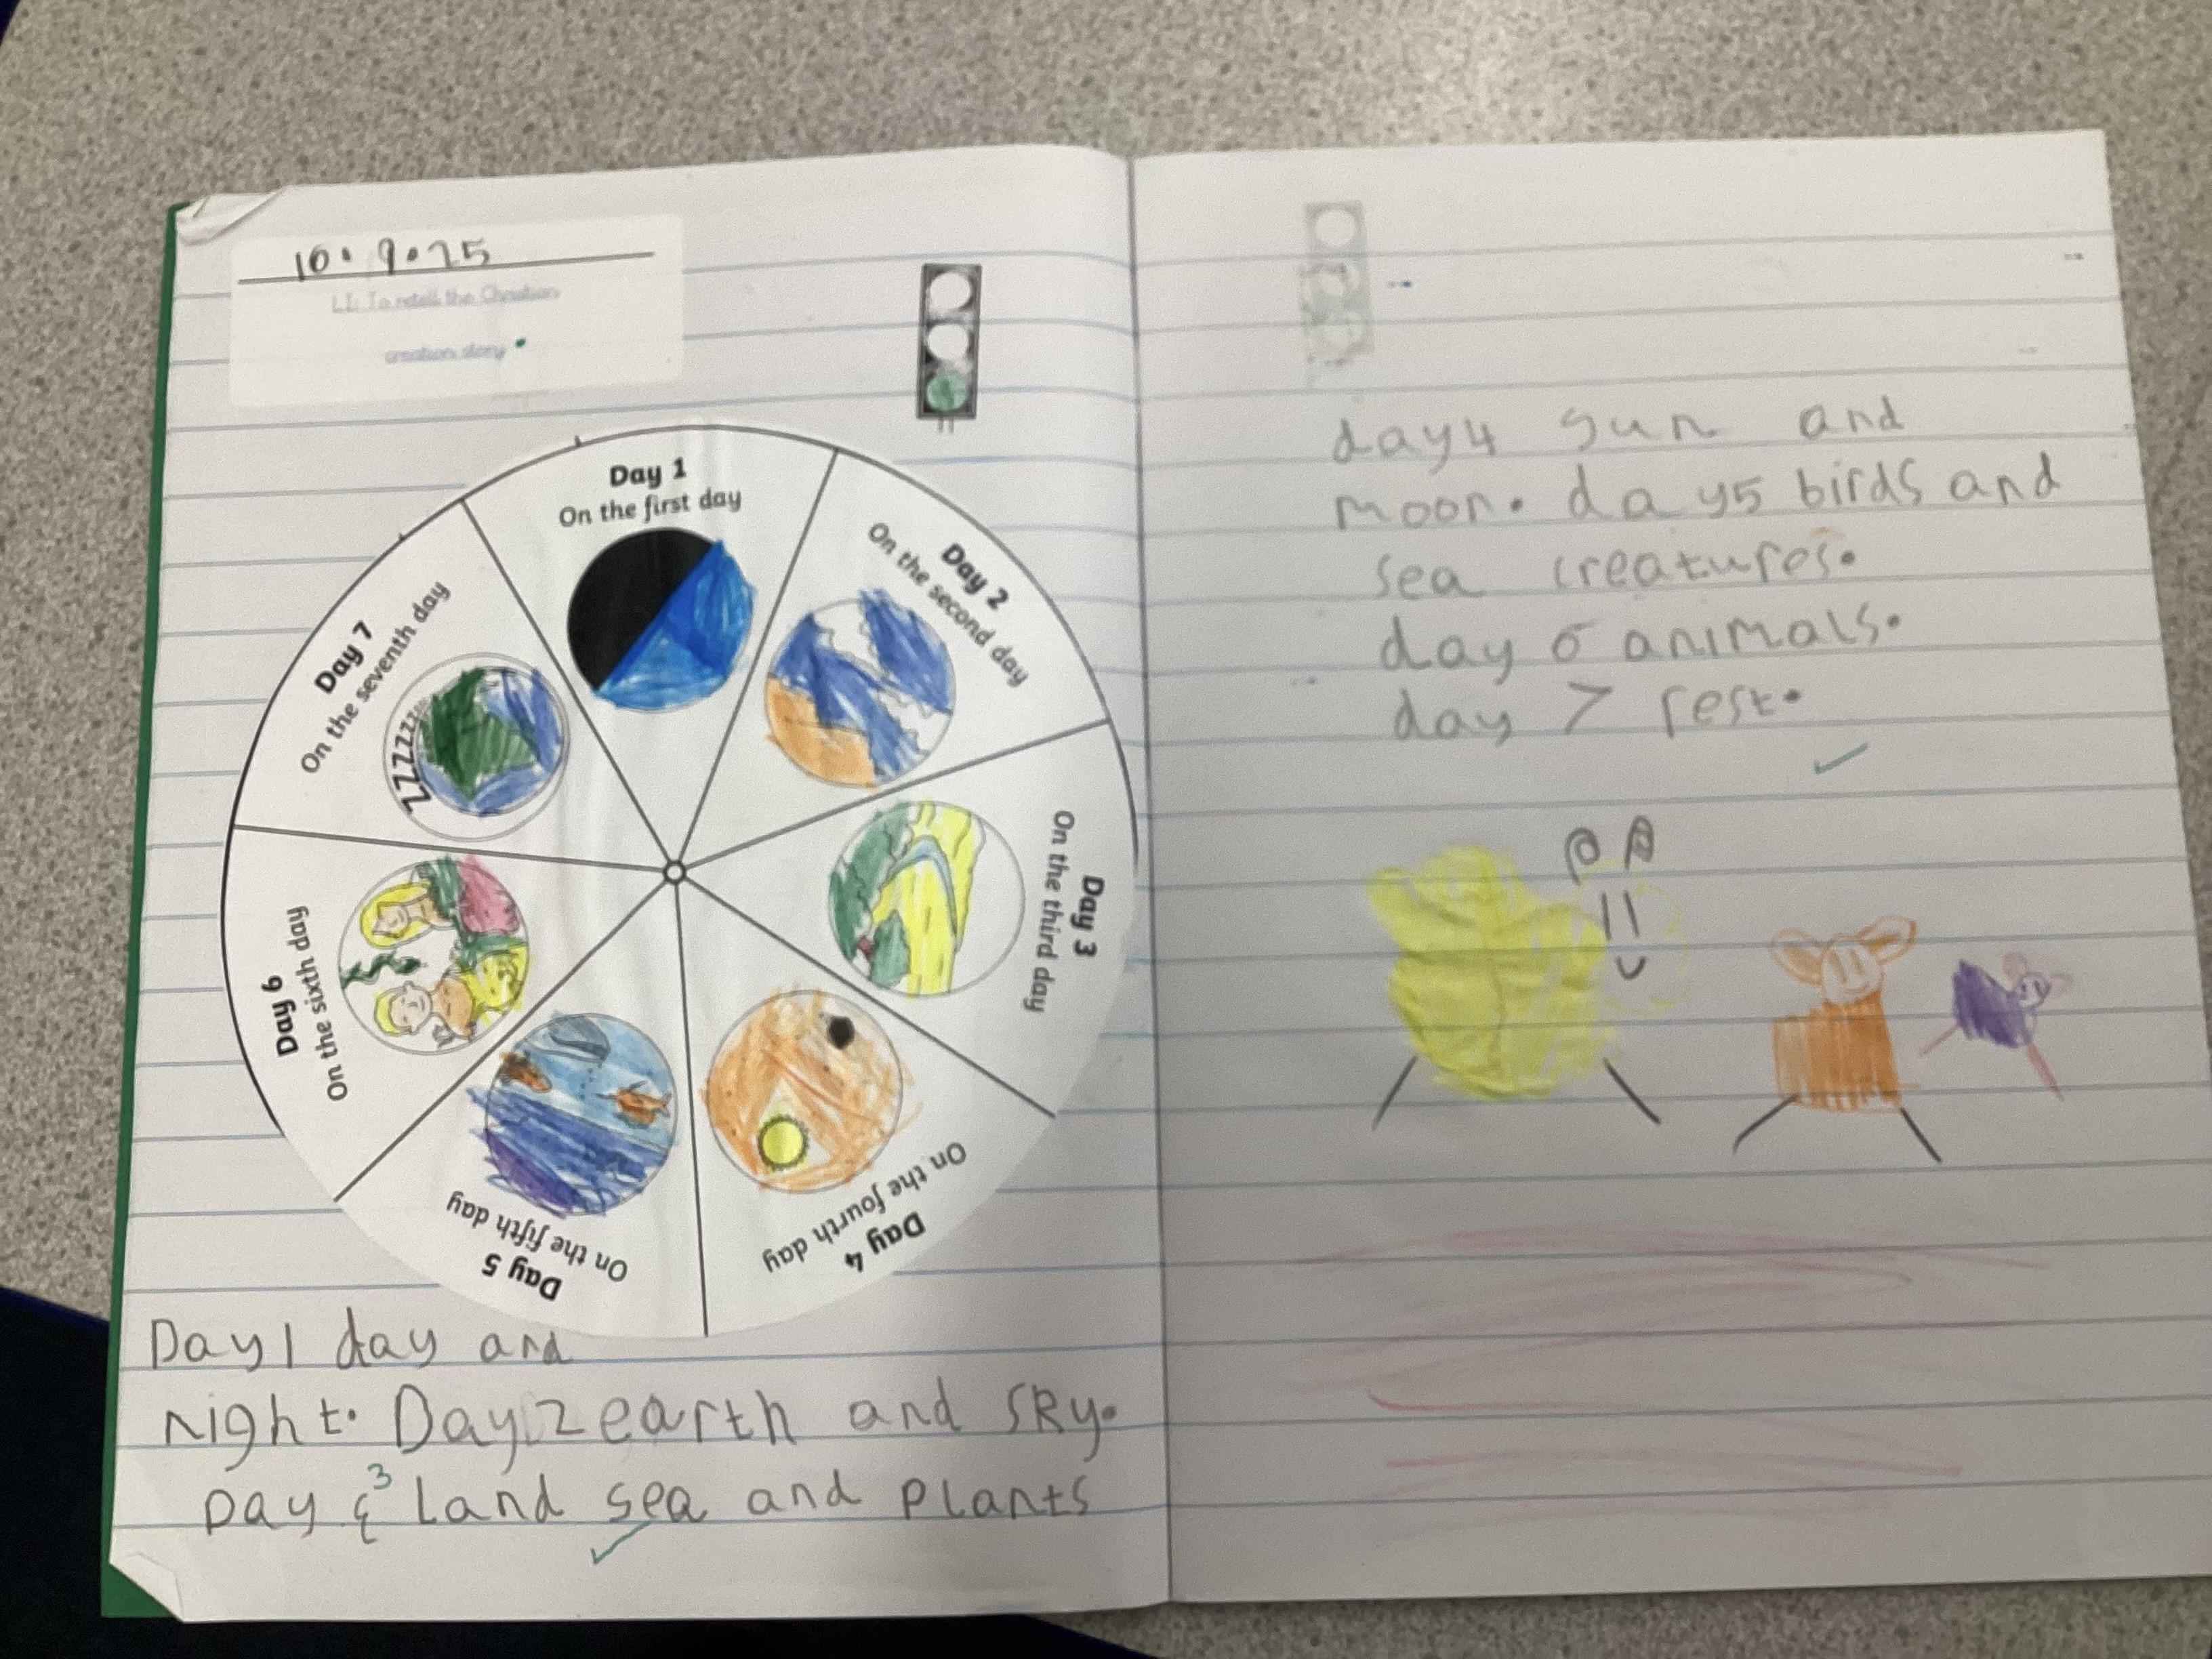 10.9.25
LI: To retell the Christian
creation story.
Day 1
On the first day
Day 2
On the second day
Day 3
On the third day
Day 4
On the fourth day
Day 5
On the fifth day
Day 6
On the sixth day
Day 7
On the seventh day
ZZZZZZZ
Day1 day and
night. Day 2 earth and sky.
Day 3 Land sea and plants
day4 sun and
moon. day5 birds and
sea creatures.
day 6 animals.
day 7 rest.